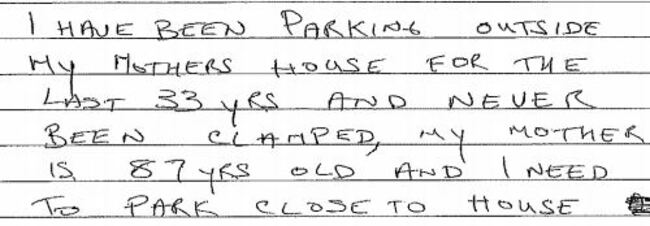 I HAVE BEEN PARKING OUTSIDE
MY MOTHERS HOUSE FOR THE
LAST 33 YRS AND NEVER
BEEN CLAMPED, MY MOTHER
IS 87 YRS OLD AND I NEED
TO PARK CLOSE TO HOUSE